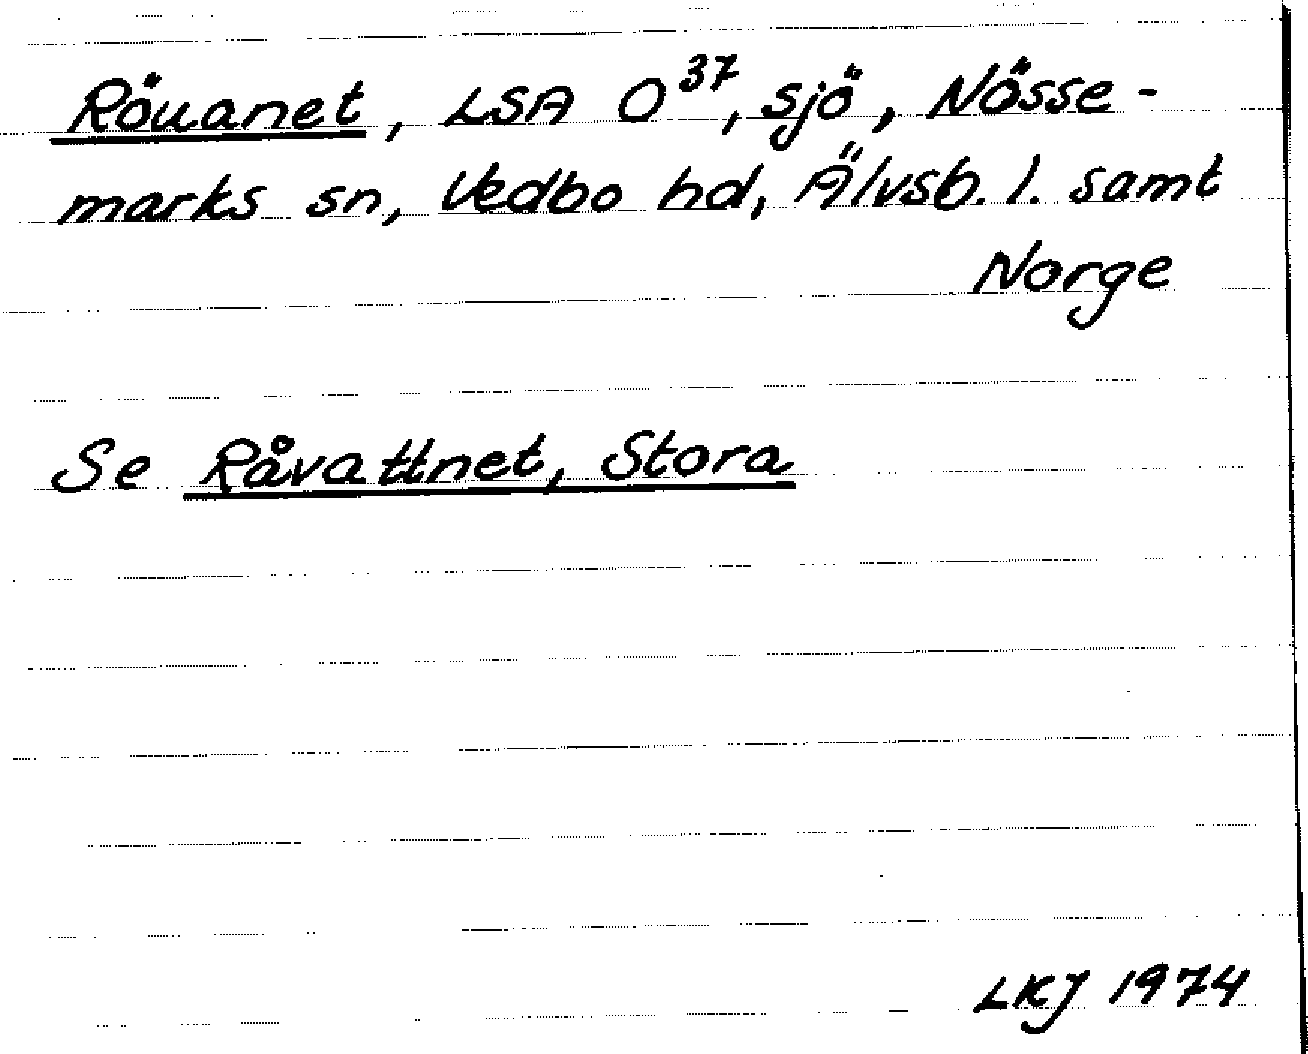 Röuanet, LSA O37, sjö, Nösse-
marks sn, Vedbo hd, Älvsb. l. samt
Norge
Se Råvattnet, Stora
LKJ 1974